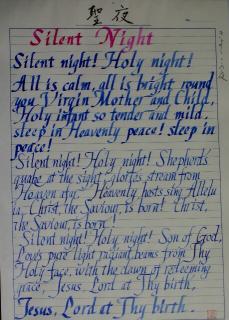 聖夜
Silent Night
Silent night! Holy night!
All is calm, all is bright round
you Virgin Mother and Child,
Holy infant so tender and mild.
sleep in Heavenly peace! sleep in
peace!
Silent night! Holy night! Shepherds
quake at the sight Glories stream from
Heaven Heavenly hosts sing Allelu
ia, Christ, the Saviour, is born! Christ,
the Saviour, is born!
Silent night! Holy night! Son of God,
Love's pure light radiant beams from Thy
Holy face, with the dawn of redeeming
grace, Jesus, Lord at Thy birth,
Jesus, Lord at Thy birth.